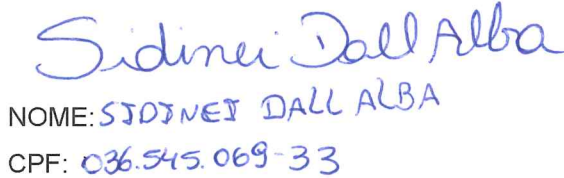 Sidinei Dall Alba
NOME: SIDINEI DALL ALBA
CPF: 036.545.069-33